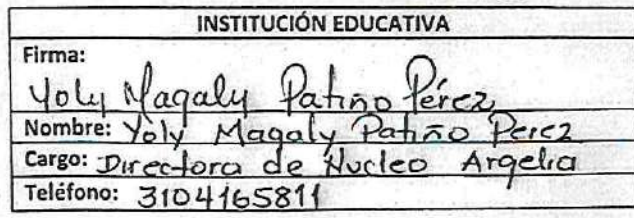 INSTITUCIÓN EDUCATIVA
Firma:
Yoly Magaly Patiño Pérez
Nombre: Yoly Magaly Patiño Perez
Cargo: Directora de Nucleo Argelia
Teléfono: 3104165811